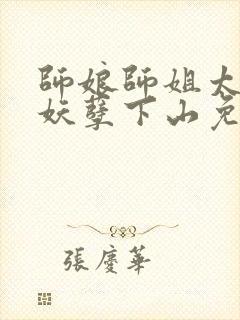 師娘師姐太
妖孽下山免
張慶華